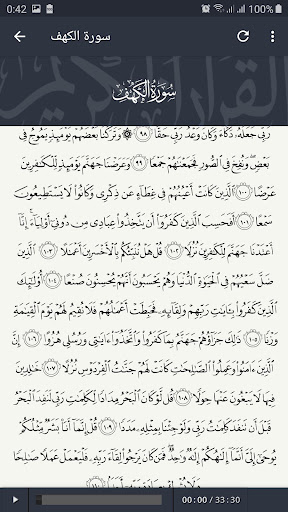 0:42 100%
سورة الكهف
القرآن الكريم
سُورَةُ الْكَهْفِ
رَبِّي جَعَلَهُۥ دَكَّآءَ وَكَانَ وَعْدُ رَبِّي حَقًّا ٩٨ وَتَرَكْنَا بَعْضَهُمْ يَوْمَئِذٍ يَمُوجُ فِي
بَعْضٍ وَنُفِخَ فِي ٱلصُّورِ فَجَمَعْنَٰهُمْ جَمْعًا ٩٩ وَعَرَضْنَا جَهَنَّمَ يَوْمَئِذٍ لِّلْكَٰفِرِينَ
عَرْضًا ١٠٠ ٱلَّذِينَ كَانَتْ أَعْيُنُهُمْ فِي غِطَآءٍ عَن ذِكْرِي وَكَانُوا۟ لَا يَسْتَطِيعُونَ
سَمْعًا ١٠١ أَفَحَسِبَ ٱلَّذِينَ كَفَرُوٓا۟ أَن يَتَّخِذُوا۟ عِبَادِي مِن دُونِيٓ أَوْلِيَآءَ ۚ إِنَّآ
أَعْتَدْنَا جَهَنَّمَ لِلْكَٰفِرِينَ نُزُلًا ١٠٢ قُلْ هَلْ نُنَبِّئُكُم بِٱلْأَخْسَرِينَ أَعْمَٰلًا ١٠٣ ٱلَّذِينَ
ضَلَّ سَعْيُهُمْ فِي ٱلْحَيَوٰةِ ٱلدُّنْيَا وَهُمْ يَحْسَبُونَ أَنَّهُمْ يُحْسِنُونَ صُنْعًا ١٠٤ أُو۟لَٰٓئِكَ
ٱلَّذِينَ كَفَرُوا۟ بِـَٔايَٰتِ رَبِّهِمْ وَلِقَآئِهِۦ فَحَبِطَتْ أَعْمَٰلُهُمْ فَلَا نُقِيمُ لَهُمْ يَوْمَ ٱلْقِيَٰمَةِ
وَزْنًا ١٠٥ ذَٰلِكَ جَزَآؤُهُمْ جَهَنَّمُ بِمَا كَفَرُوا۟ وَٱتَّخَذُوٓا۟ ءَايَٰتِي وَرُسُلِي هُزُوًا ١٠٦ إِنَّ
ٱلَّذِينَ ءَامَنُوا۟ وَعَمِلُوا۟ ٱلصَّٰلِحَٰتِ كَانَتْ لَهُمْ جَنَّٰتُ ٱلْفِرْدَوْسِ نُزُلًا ١٠٧ خَٰلِدِينَ
فِيهَا لَا يَبْغُونَ عَنْهَا حِوَلًا ١٠٨ قُل لَّوْ كَانَ ٱلْبَحْرُ مِدَادًا لِّكَلِمَٰتِ رَبِّي لَنَفِدَ ٱلْبَحْرُ
قَبْلَ أَن تَنفَدَ كَلِمَٰتُ رَبِّي وَلَوْ جِئْنَا بِمِثْلِهِۦ مَدَدًا ١٠٩ قُلْ إِنَّمَآ أَنَا۠ بَشَرٌ مِّثْلُكُمْ
يُوحَىٰٓ إِلَيَّ أَنَّمَآ إِلَٰهُكُمْ إِلَٰهٌ وَٰحِدٌ ۖ فَمَن كَانَ يَرْجُوا۟ لِقَآءَ رَبِّهِۦ فَلْيَعْمَلْ عَمَلًا صَٰلِحًا
00:00 / 33:30